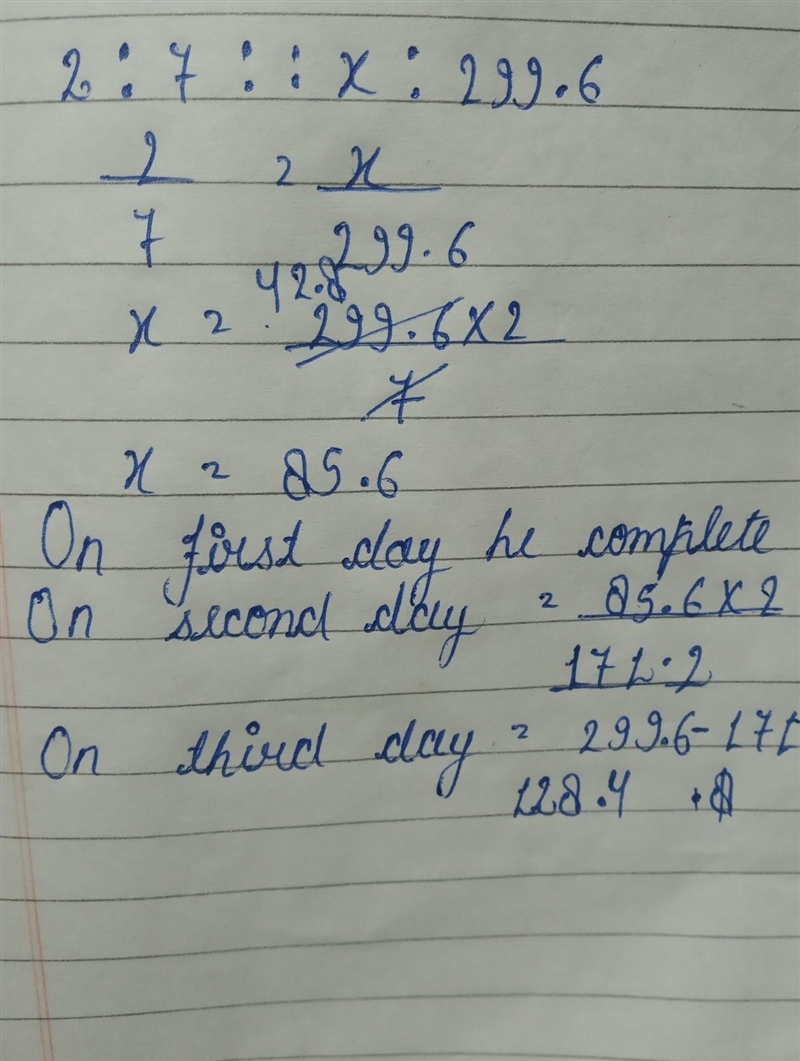 2 : 7 : : x : 299.6
2/7 = x/299.6
42.8
x = 299.6 x 2
7
x = 85.6
On first day he complete
On second day = 85.6 x 2
171.2
On third day = 299.6 - 171
128.4